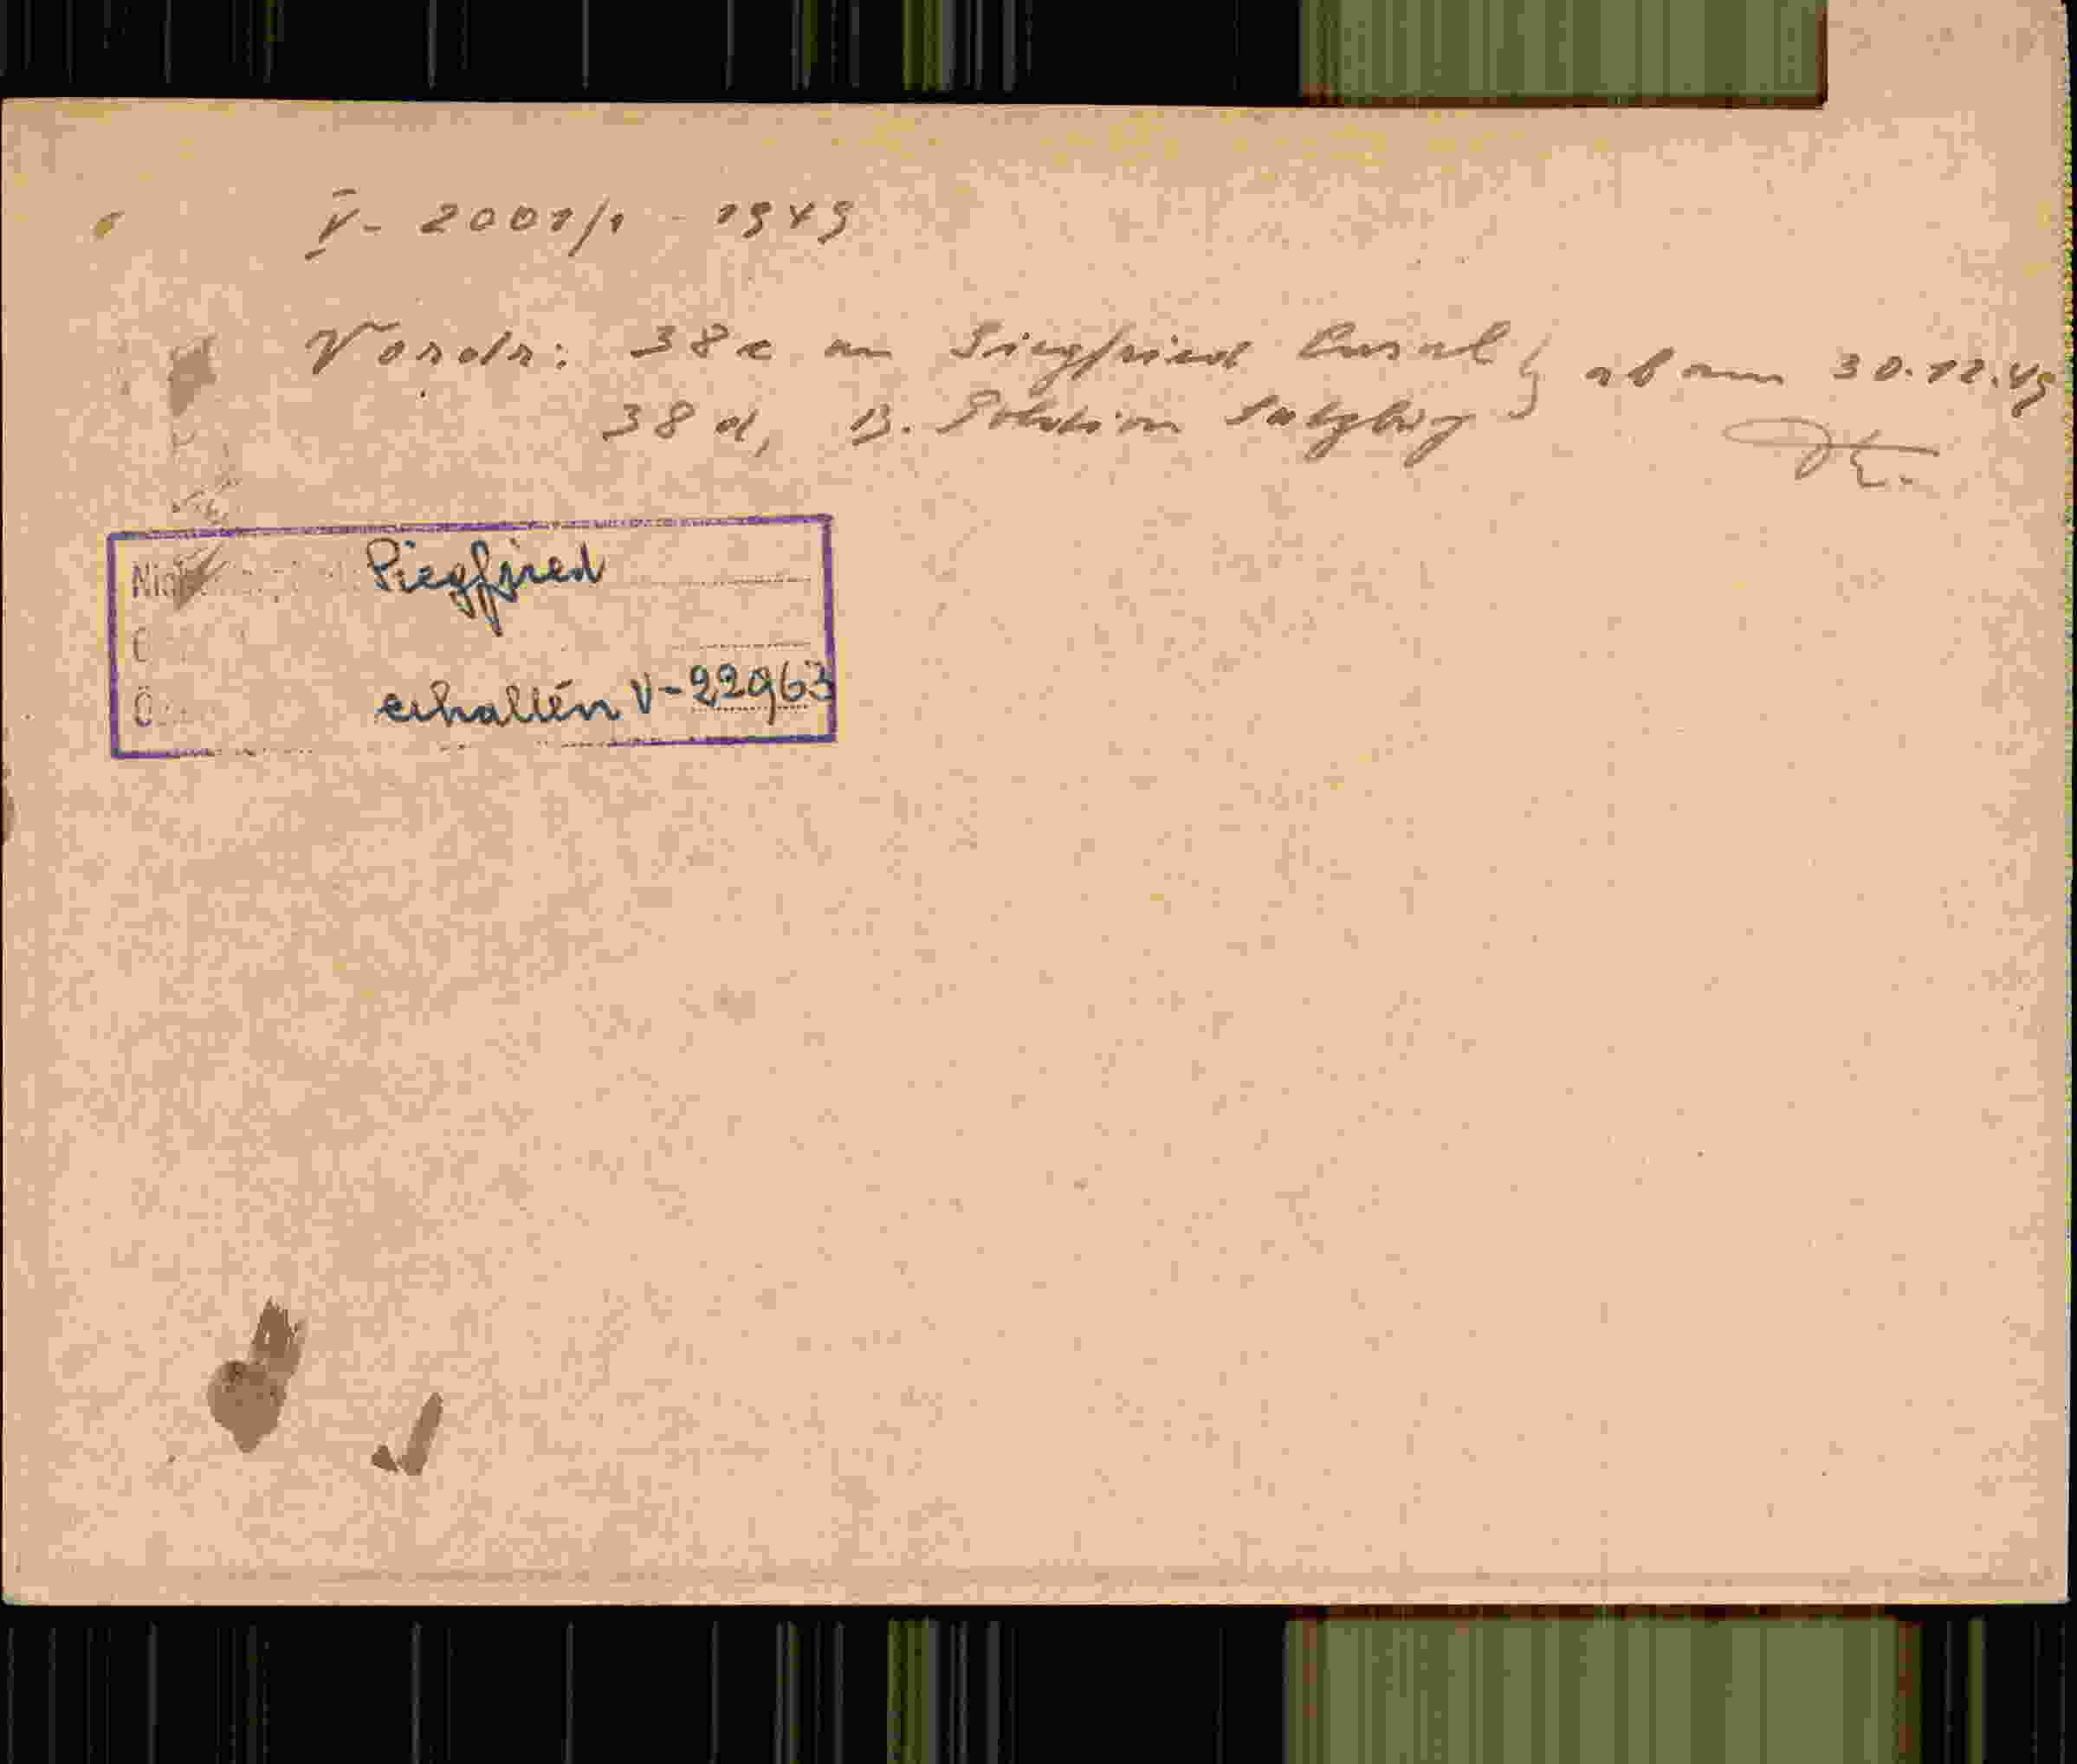 V- 2001/1 - 1949
Vordr: 38c an Siegfried
ab am 30.12.49
38d, B. Station Salzburg
Siegfried
erhalten V-22963